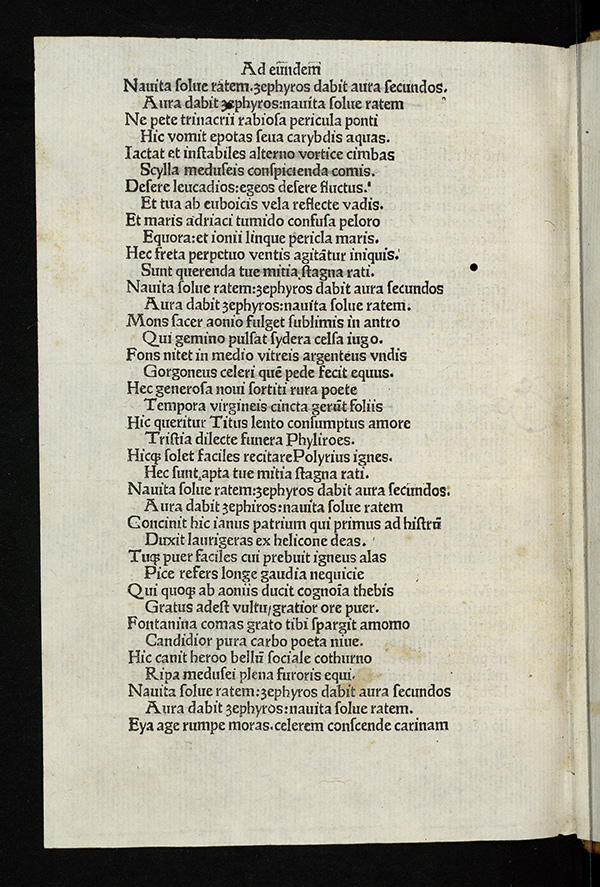 Ad eūndem
Nauita solue ratem.ʒephyros dabit aura secundos.
Aura dabit ʒephyros:nauita solue ratem
Ne pete trinacrii rabiosa pericula ponti
Hic vomit epotas seua carybdis aquas.
Iactat et instabiles alterno vortice cimbas
Scylla meduseis conspicienda comis.
Desere leucadios:egeos desere fluctus.
Et tua ab euboicis vela reflecte vadis.
Et maris adriaci tumido confusa peloro
Equora:et ionii linque pericla maris.
Hec freta perpetuo ventis agitātur iniquis.
Sunt querenda tue mitia stagna rati.
Nauita solue ratem:ʒephyros dabit aura secundos
Aura dabit ʒephyros:nauita solue ratem.
Mons sacer aonio fulget sublimis in antro
Qui gemino pulsat sydera celsa iugo.
Fons nitet in medio vitreis argenteus vndis
Gorgoneus celeri quē pede fecit equus.
Hec generosa noui sortiti rura poete
Tempora virgineis cincta gerūt foliis
Hic queritur Titus lento consumptus amore
Tristia dilecte funera Phyliroes.
Hicqꝫ solet faciles recitare Polyrius ignes.
Hec sunt apta tue mitia stagna rati.
Nauita solue ratem:ʒephyros dabit aura secundos.
Aura dabit ʒephiros:nauita solue ratem
Concinit hic ianus patrium qui primus ad histrū
Duxit laurigeras ex helicone deas.
Tuqꝫ puer faciles cui prebuit igneus alas
Pice refers longe gaudia nequicie
Qui quoqꝫ ab aoniis ducit cognoīa thebis
Gratus adest vultu/gratior ore puer.
Fontanina comas grato tibi spargit amomo
Candidior pura carbo poeta niue.
Hic canit heroo bellū sociale cothurno
Ripa medusei plena furoris equi.
Nauita solue ratem:ʒephyros dabit aura secundos
Aura dabit ʒephyros:nauita solue ratem.
Eya age rumpe moras.celerem conscende carinam